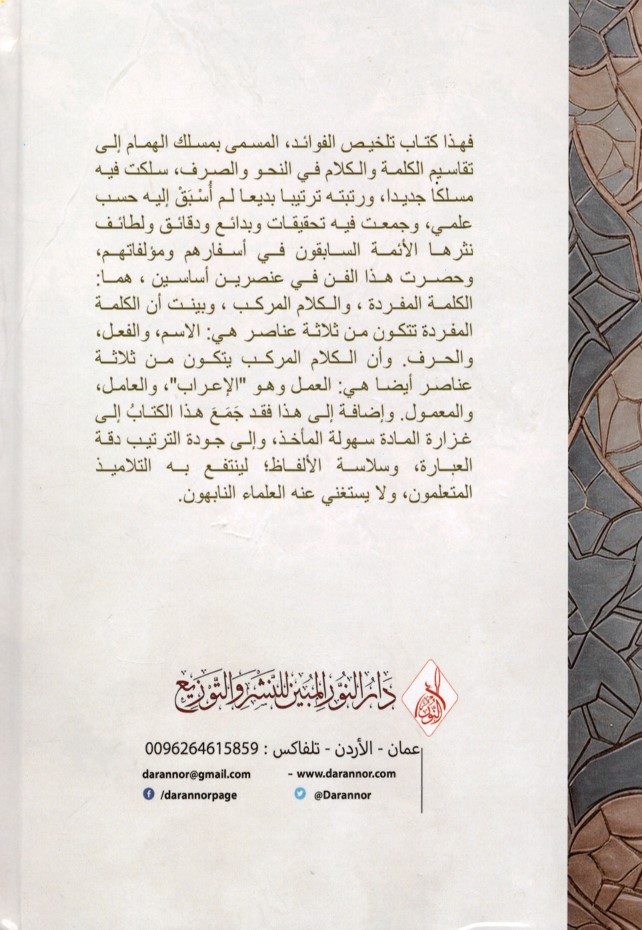 فهذا كتاب تلخيص الفوائد، المسمى بمسلك الهمام إلى
تقاسيم الكلمة والكلام في النحو والصرف، سلكت فيه
مسلكا جديدا، ورتبته ترتيبا بديعا لم أُسْبَقْ إليه حسب
علمي، وجمعت فيه تحقيقات وبدائع ودقائق ولطائف
نثرها الأئمة السابقون في أسفارهم ومؤلفاتهم،
وحصرت هذا الفن في عنصرين أساسين ، هما:
الكلمة المفردة ، والكلام المركب ، وبينت أن الكلمة
المفردة تتكون من ثلاثة عناصر هي: الاسم، والفعل،
والحرف. وأن الكلام المركب يتكون من ثلاثة
عناصر أيضا هي: العمل وهو "الإعراب"، والعامل،
والمعمول. وإضافة إلى هذا فقد جَمَعَ هذا الكتابُ إلى
غزارة المادة سهولة المأخذ، وإلى جودة الترتيب دقة
العبارة، وسلاسة الألفاظ؛ لينتفع به التلاميذ
المتعلمون، ولا يستغني عنه العلماء النابهون.
النور
دار النور المبين للنشر والتوزيع
عمان - الأردن - تلفاكس : 0096264615859
darannor@gmail.com – www.darannor.com
/darannorpage @Darannor